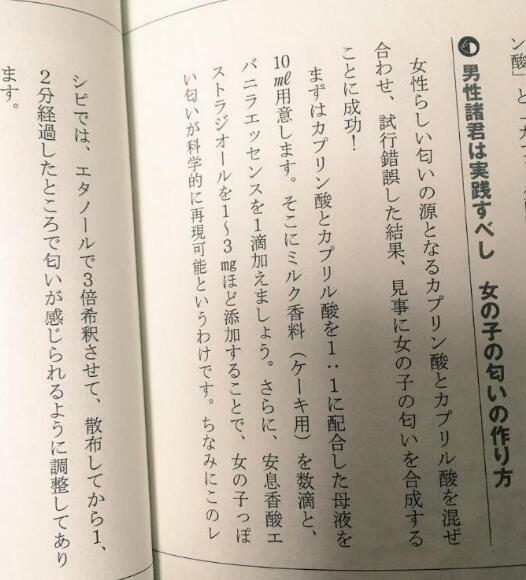 男性諸君は実践すべし 女の子の匂いの作り方
女性らしい匂いの源となるカプリン酸とカプリル酸を混ぜ
合わせ、試行錯誤した結果、見事に女の子の匂いを合成する
ことに成功！
まずはカプリン酸とカプリル酸を1：1に配合した母液を
10㎖用意します。そこにミルク香料（ケーキ用）を数滴と、
バニラエッセンスを1滴加えましょう。さらに、安息香酸エ
ストラジオールを1～3㎎ほど添加することで、女の子っぽ
い匂いが科学的に再現可能というわけです。ちなみにこのレ
シピでは、エタノールで3倍希釈させて、散布してから1、
2分経過したところで匂いが感じられるように調整してあり
ます。